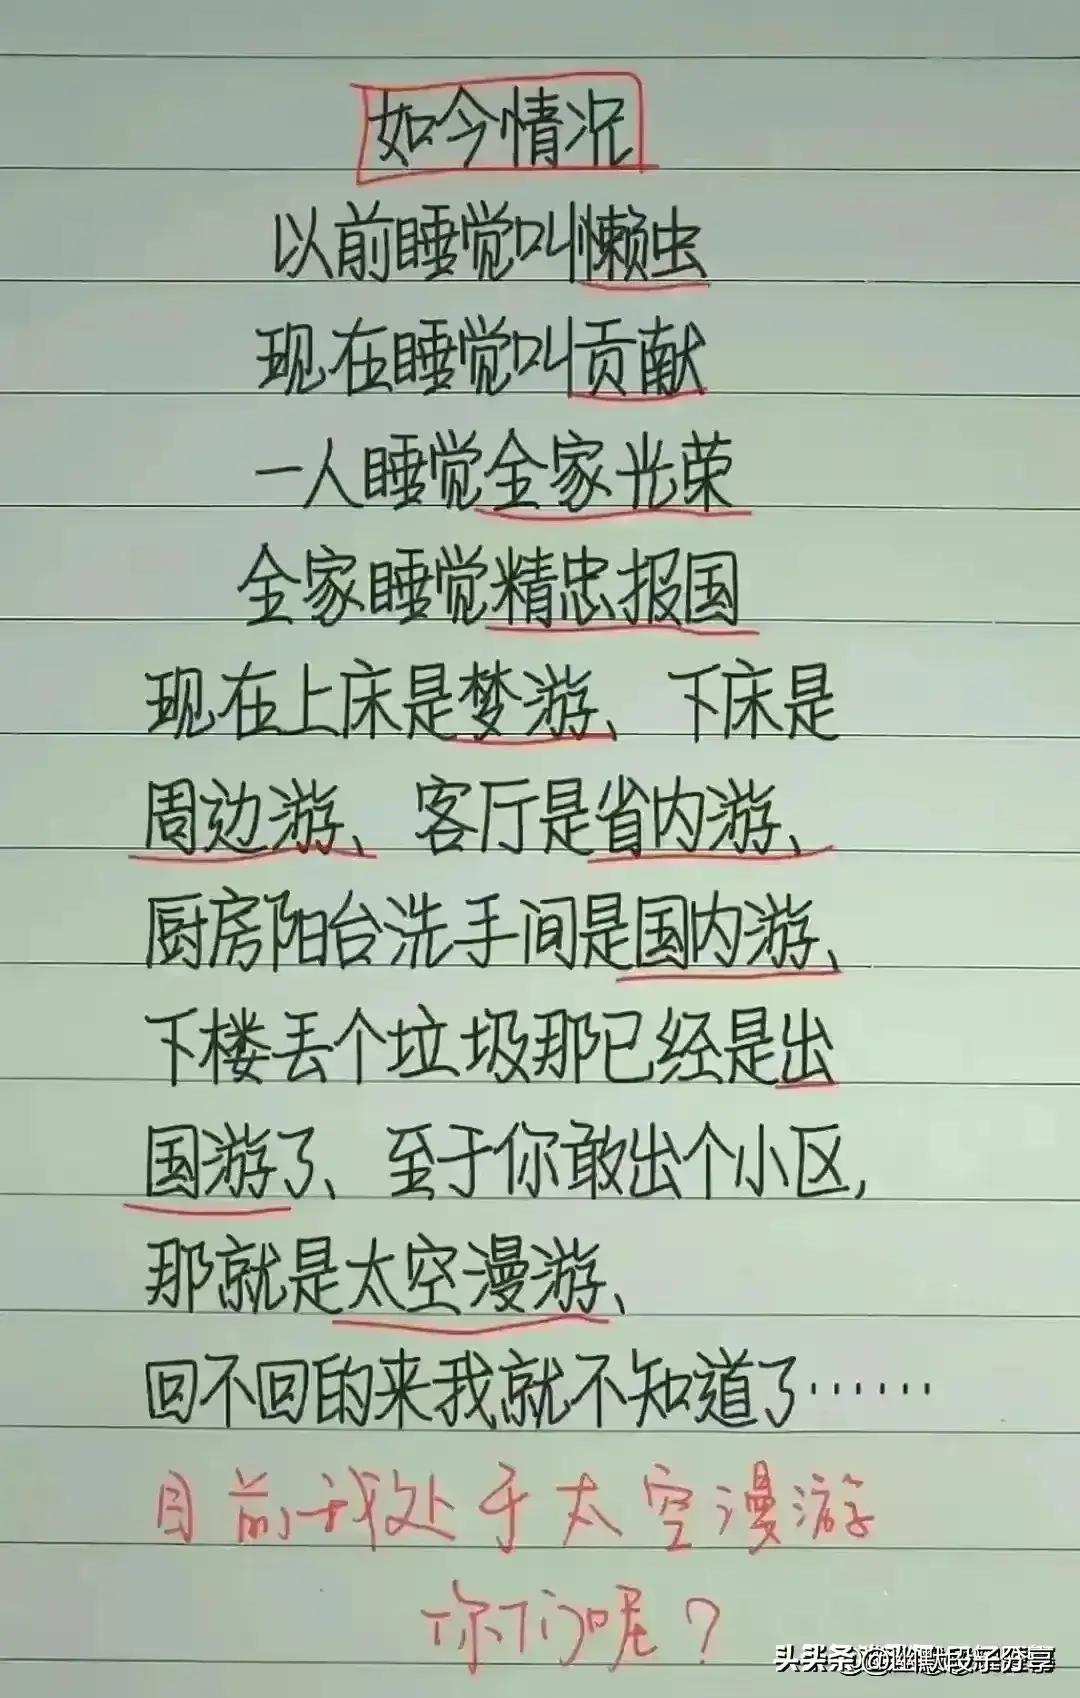 如今情况
以前睡觉叫懒虫
现在睡觉叫贡献
一人睡觉全家光荣
全家睡觉精忠报国
现在上床是梦游、下床是
周边游、客厅是省内游、
厨房阳台洗手间是国内游、
下楼丢个垃圾那已经是出
国游了、至于你敢出个小区,
那就是太空漫游、
回不回的来我就不知道了……
目前我处于太空漫游
你们呢?
头条 @幽默段子分享